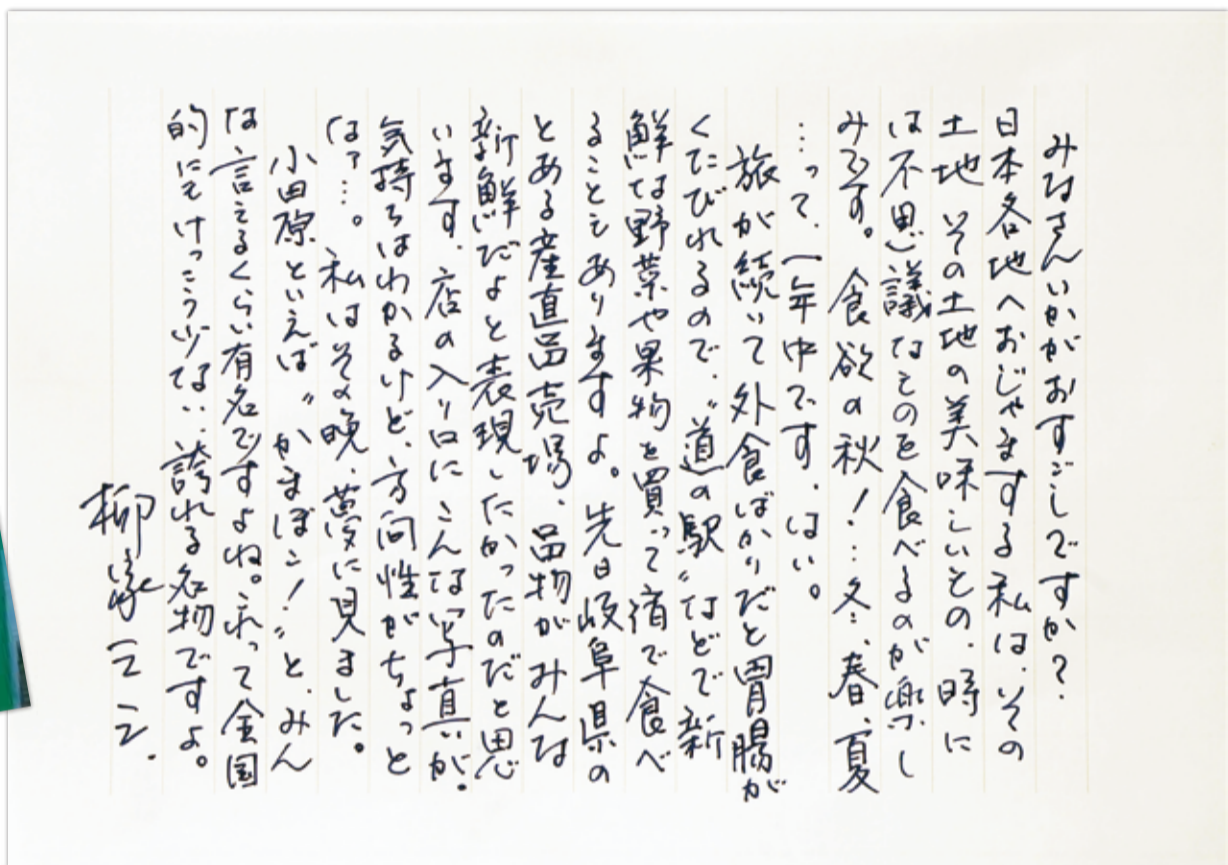 みなさんいかがおすごしですか?
日本各地へおじゃまする私は、その
土地その土地の美味しいもの、時に
は不思議なものを食べるのが楽し
みです。食欲の秋!…冬…、春、夏
…って、一年中です、はい。
旅が続いて外食ばかりだと胃腸が
くたびれるので、〝道の駅〟などで新
鮮な野菜や果物を買って宿で食べ
ることもありますよ。先日岐阜県の
とある産直品売場、品物がみんな
新鮮だよと表現したかったのだと思
います、店の入り口にこんな写真が。
気持ちはわかるけど、方向性がちょっと
なァ…。私はその晩、夢に見ました。
小田原といえば〝かまぼこ!〟と、みん
な言えるくらい有名ですよね。これって全国
的にもけっこう少ない、誇れる名物ですよ。
柳家三三